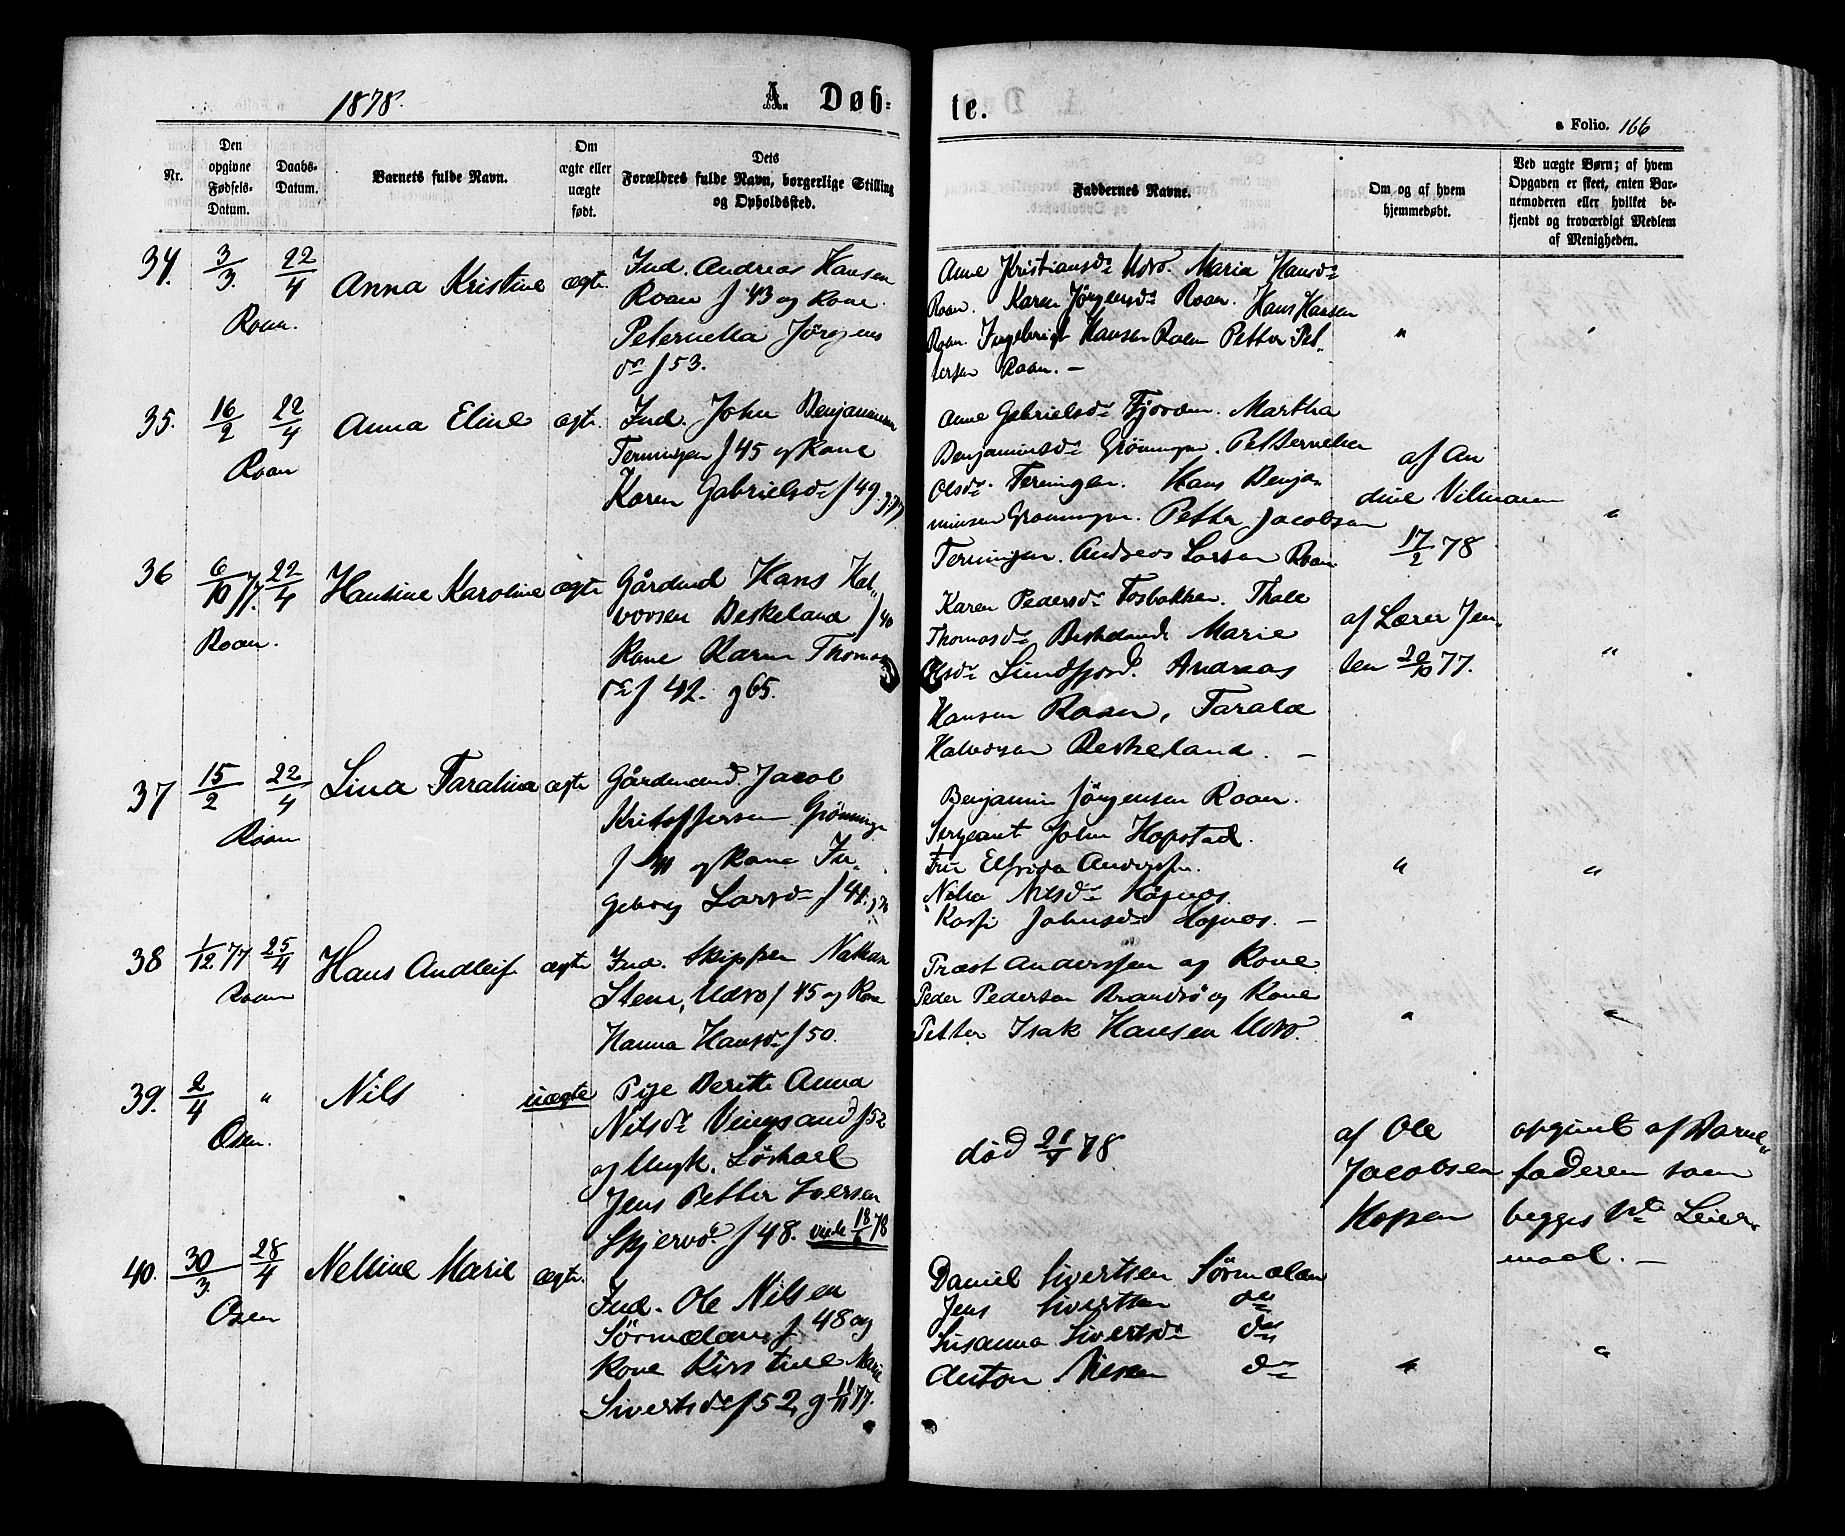 1878.
A. Døb-
te.
Folio. 166
Nr.
Den opgivne Fødsels-Datum.
Daabs-Datum.
Barnets fulde Navn.
Om ægte eller uægte født.
Dets Forældres fulde Navn, borgerlige Stilling og Opholdssted.
Faddernes Navne.
Om og af hvem hjemmedøbt.
Ved uægte Børn; af hvem Opgaven er skeet, enten Barnemoderen eller hvilket bekjendt og troværdigt Medlem af Menigheden.
34. 3/3. 22/4 Anna Kristine ægte
Roan.
Ind. Andreas Hansen
Roan f 43 og Kone
Peternella Jørgens
dr f 53.
Anne Kristiansdr Udvo. Maria Hansdr
Roan. Karen Jørgensdr Roan. Hans Hansen
Roan. Ingebrigt Hansen Roan Petter Pet-
tersen Roan. —
35. 16/2 22/4 Anna Eline ægte
Roan
Ind. John Benjaminsen
Terningen f 45 og Kone
Karen Gabrielsdr f 49. g 77
Anne Gabrielsdr Fjorden. Martha
Benjaminsdr Grønningen. Petternella
Olsdr Terningen. Hans Benja-
minsen Grønningen. Petter Jacobsen
Terningen. Andreas Larsen Roan
af An
dine Vilmann
17/2 78
36 6/10 77. 22/4 Hansine Karoline ægte
Roan.
Gårdmd Hans Hal-
vorsen Beskeland f 40
Kone Karen Thomas
dr f 42. g 65.
Karen Pedersdr Fosbakken. Thale
Thomasdr Beskeland Marie
Olsdr Sundfjord. Andreas
Hansen Roan, Tarald
Halvorsen Beskeland. —
af Lærer Jen-
sen 20/10 77.
37 15/2 22/4 Lina Taralina ægte
Roan
Gårdmand Jacob
Kristoffersen Grønninge
f 40 og Kone In-
geborg Larsdr f 41.
Benjamin Jørgensen Roan.
Sergeant John Hopstad.
Fru Elfrida Anderssen.
Nilsdr Hognes.
Johnsdr Hognes. —
38 1/12. 77 25/4 Hans Andleif ægte
Roan
Ind. Skipper Nathan
Steen, Udvo f 45 og Kone
Hanna Hansdr f 50.
Præst Anderssen og Kone
Peder Pedersen Brandsø og Kone
Petter Isak Hansen Udvo.
39. 2/4 " Nils uægte
Osen.
Pige Berith Anna
Nilsdr Vingsand f 52
og Ungk. Løskarl
Jens Petter Iversen
Skjervø f 48. viede 18/6 78
død 21/4 78
af Ole
Jacobsen
Hopen
opgivet af Barne-
faderen som
begges 1ste Leier-
maal. —
40. 30/3. 28/4 Nelline Marie ægte
Osen
Ind. Ole Nilsen
Sørmælan f 48 og
Kone Kirstine Marie
Sivertsdr f 52, g 11/11 77.
Daniel Sivertsen Sørmælan
Jens Sivertsen do
Susanna Sivertsdr do
Anton Nilsen do